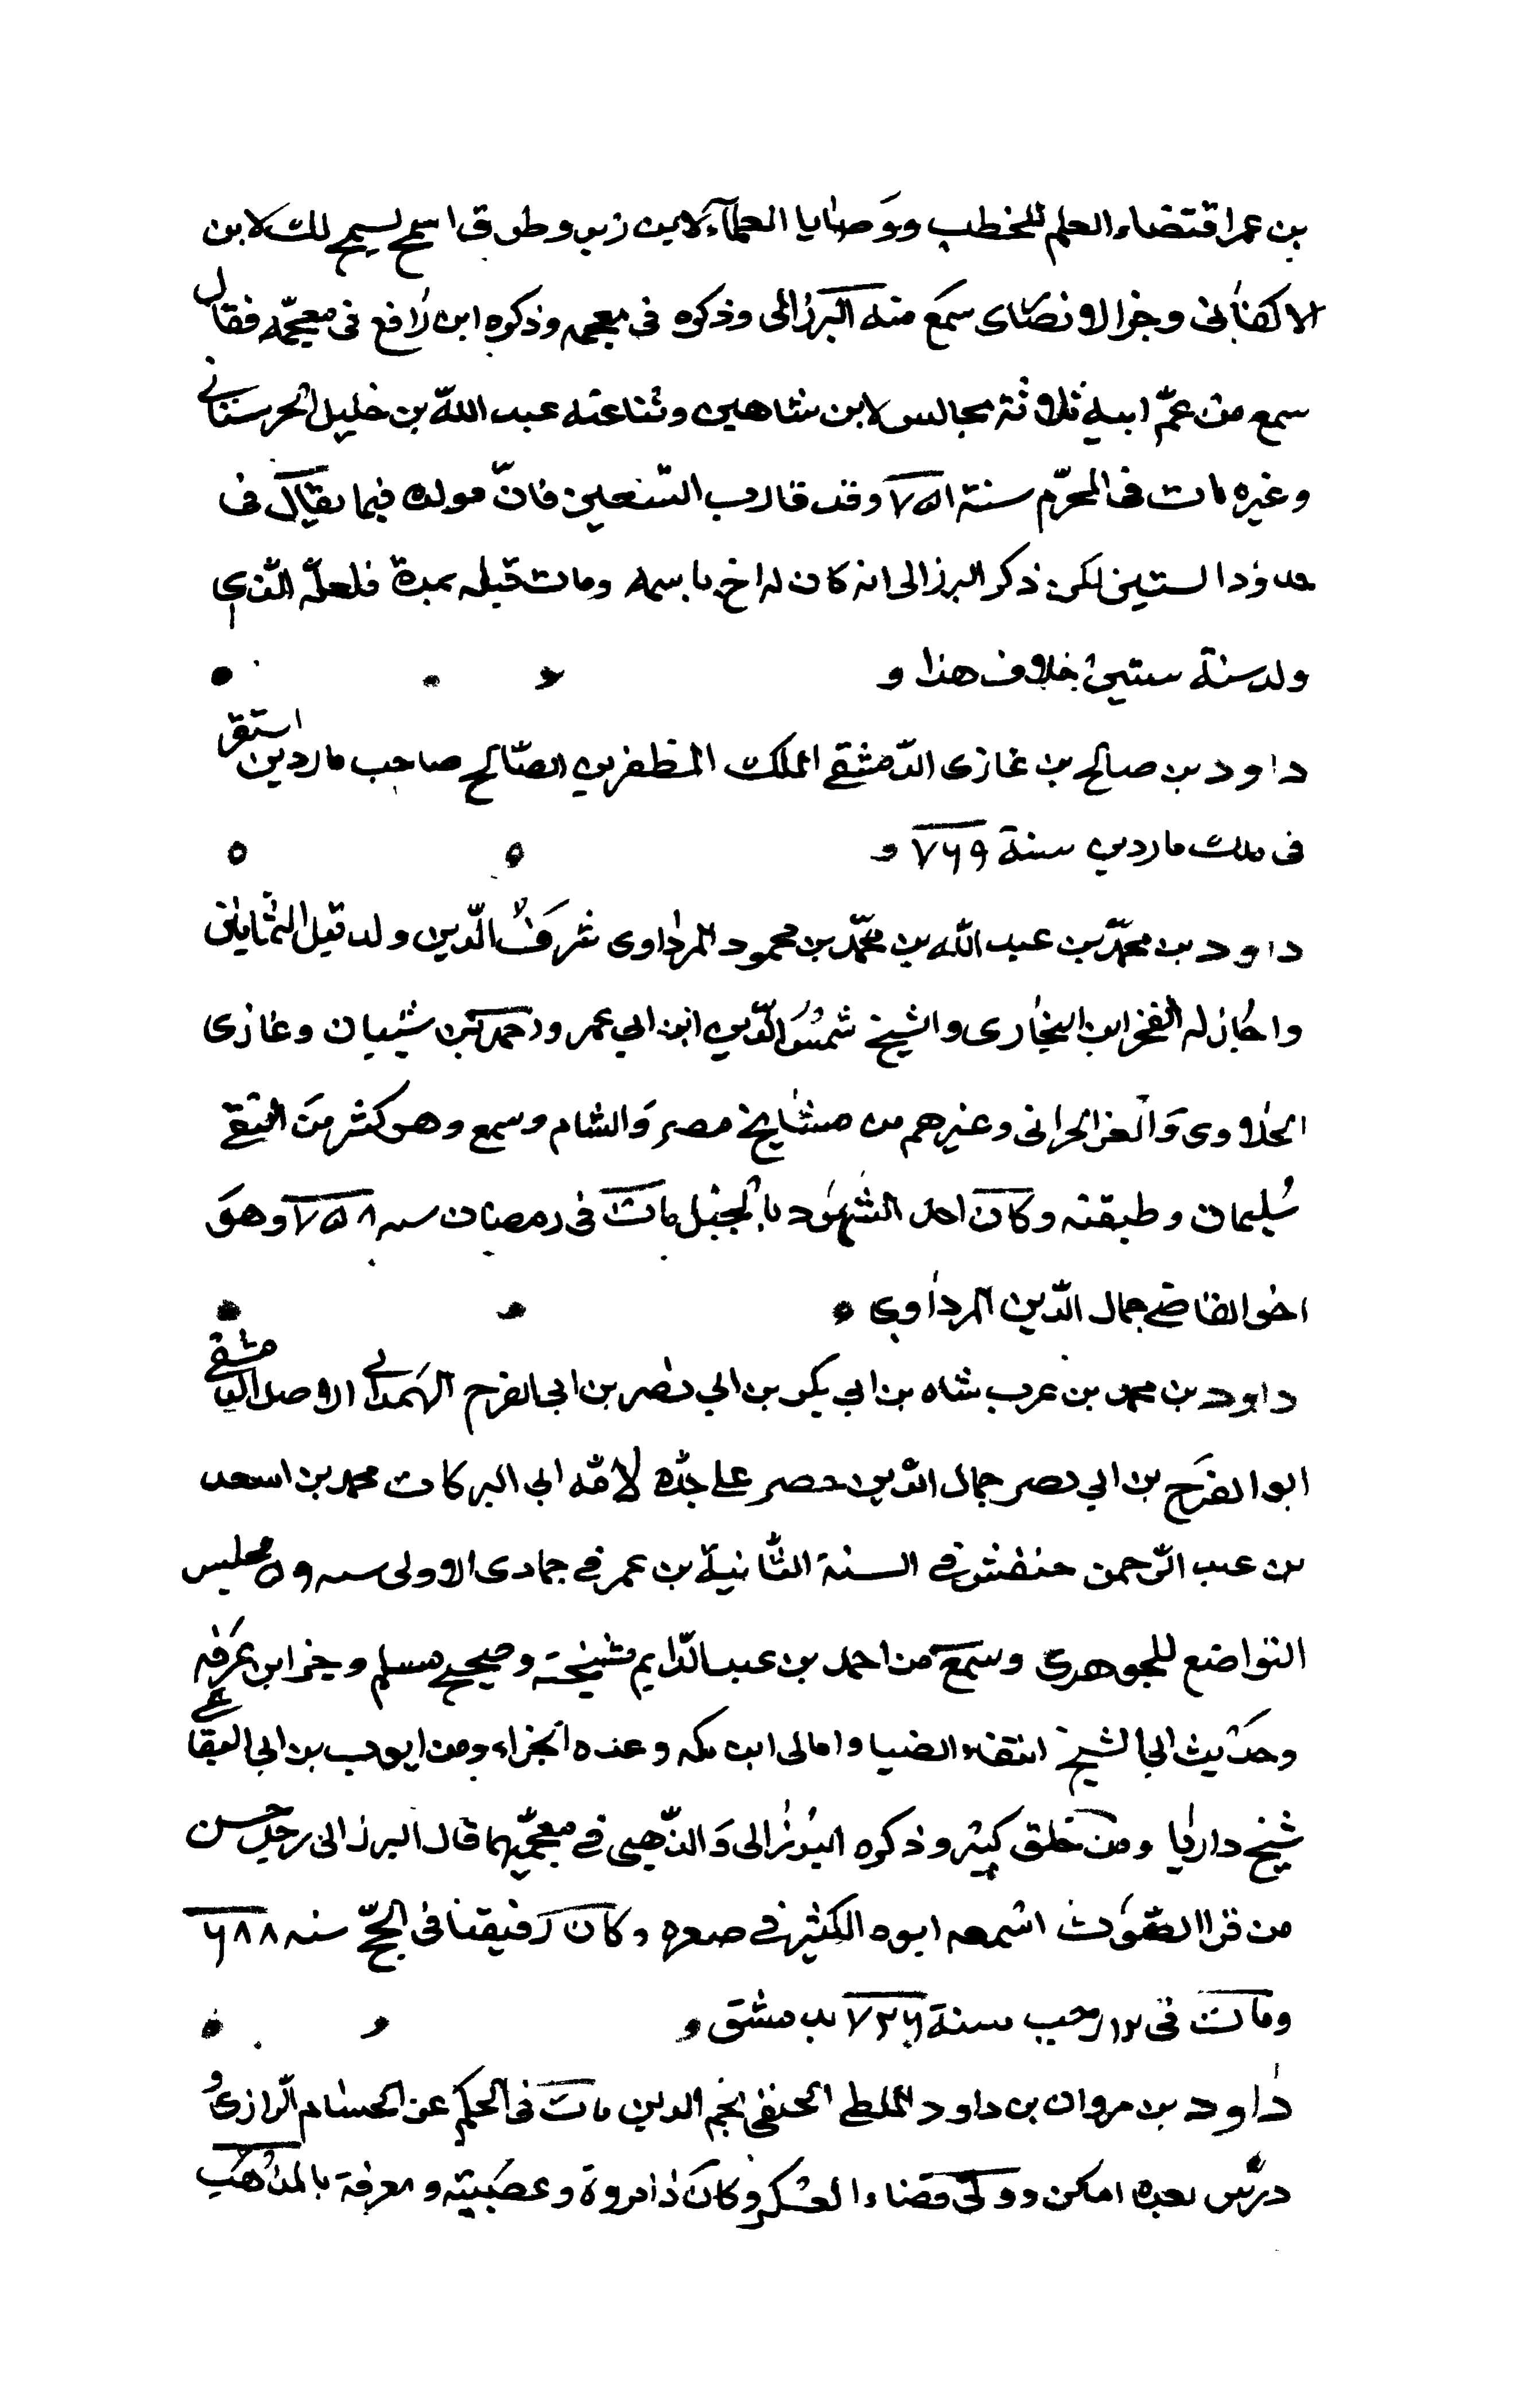 بن عمر اقتضاء العلم للخطيب ووصايا العلماء لابن زبر وطرق اسمح يسمح لك لابن
الاكفاني وجزا الانصاري سمع منه البرزالى وذكره فى معجمه وذكره ابن رافع فى معجمه فقال
سمع من عمّ ابيه ثلاثة مجالس لابن شاهين وثنا عنه عبد الله بن خليل الحرستاني
وغيره مات فى المحرّم سنة ٧٥١ وقد قارب التسعين فانّ مولده فيما يقال فى
حدود الستين لكن ذكر البرزالى انه كان له اخ باسمه ومات قبله بمدة فلعلّه الّذي
ولد سنة ستين خلاف هذا
داود بن صالح بن غازى الدّمشقي الملك المظفر بن الصّالح صاحب ماردين استقر
فى ملك ماردين سنة ٧٦٩
داود بن محمّد بن عبد اللّه بن محمّد بن محمود المرداوى شرف الدّين ولد قبل الثمانين
واجاز له الفخر ابن البخارى والشيخ شمس الدّين ابن ابي عمر واحمد بن شيبان وغازى
الحلاوى والعز الحرانى وغيرهم من مشايخ مصر والشام وسمع وهو كثر من التقي
سليمان وطبقته وكان احد الشهود بالجبل مات فى رمضان سنه ٧٥٨ وهو
اخو القاضي جمال الدّين المرداوي
داود بن محمد بن عرب شاه بن ابي بكر بن ابي نصر بن ابي الفرج الهمداني الاصل الدمشقي
ابو الفرج بن ابي نصر جمال الدّين حضر على جدّه لامّه ابي البركات محمد بن اسعد
بن عبد الرّحمن في السنة الثّانية بن عمر في جمادى الاولى سنه مجلس
التواضع للجوهرى وسمع من احمد بن عبد الدّايم مشيخته وصحيح مسلم وجزا ابن عرفه
وحديث ابي الشيخ انتقاء الضيا وامالى ابن وعده اجزاء ومن ايوب بن ابي البقا
شيخ داريا ومن خلق كثير وذكره البرزالى والذّهبى في معجميهما قال البرزالى رجل حسن
من قرا الصّوت اسمعه ابوه الكثير في صغره وكان رفيقنا فى الحجّ سنه ٦٨٨
ومات فى ١٢ رجب سنة ٧٢٦ بدمشق
داود بن مروان بن داود الملطي الحنفى نجم الدين مات فى الحكم عن الحسام الرازى و
درّس بعده اماكن وولّى قضاء العسكر وكان ذا مروة وعصبيّة ومعرفة بالمذهب